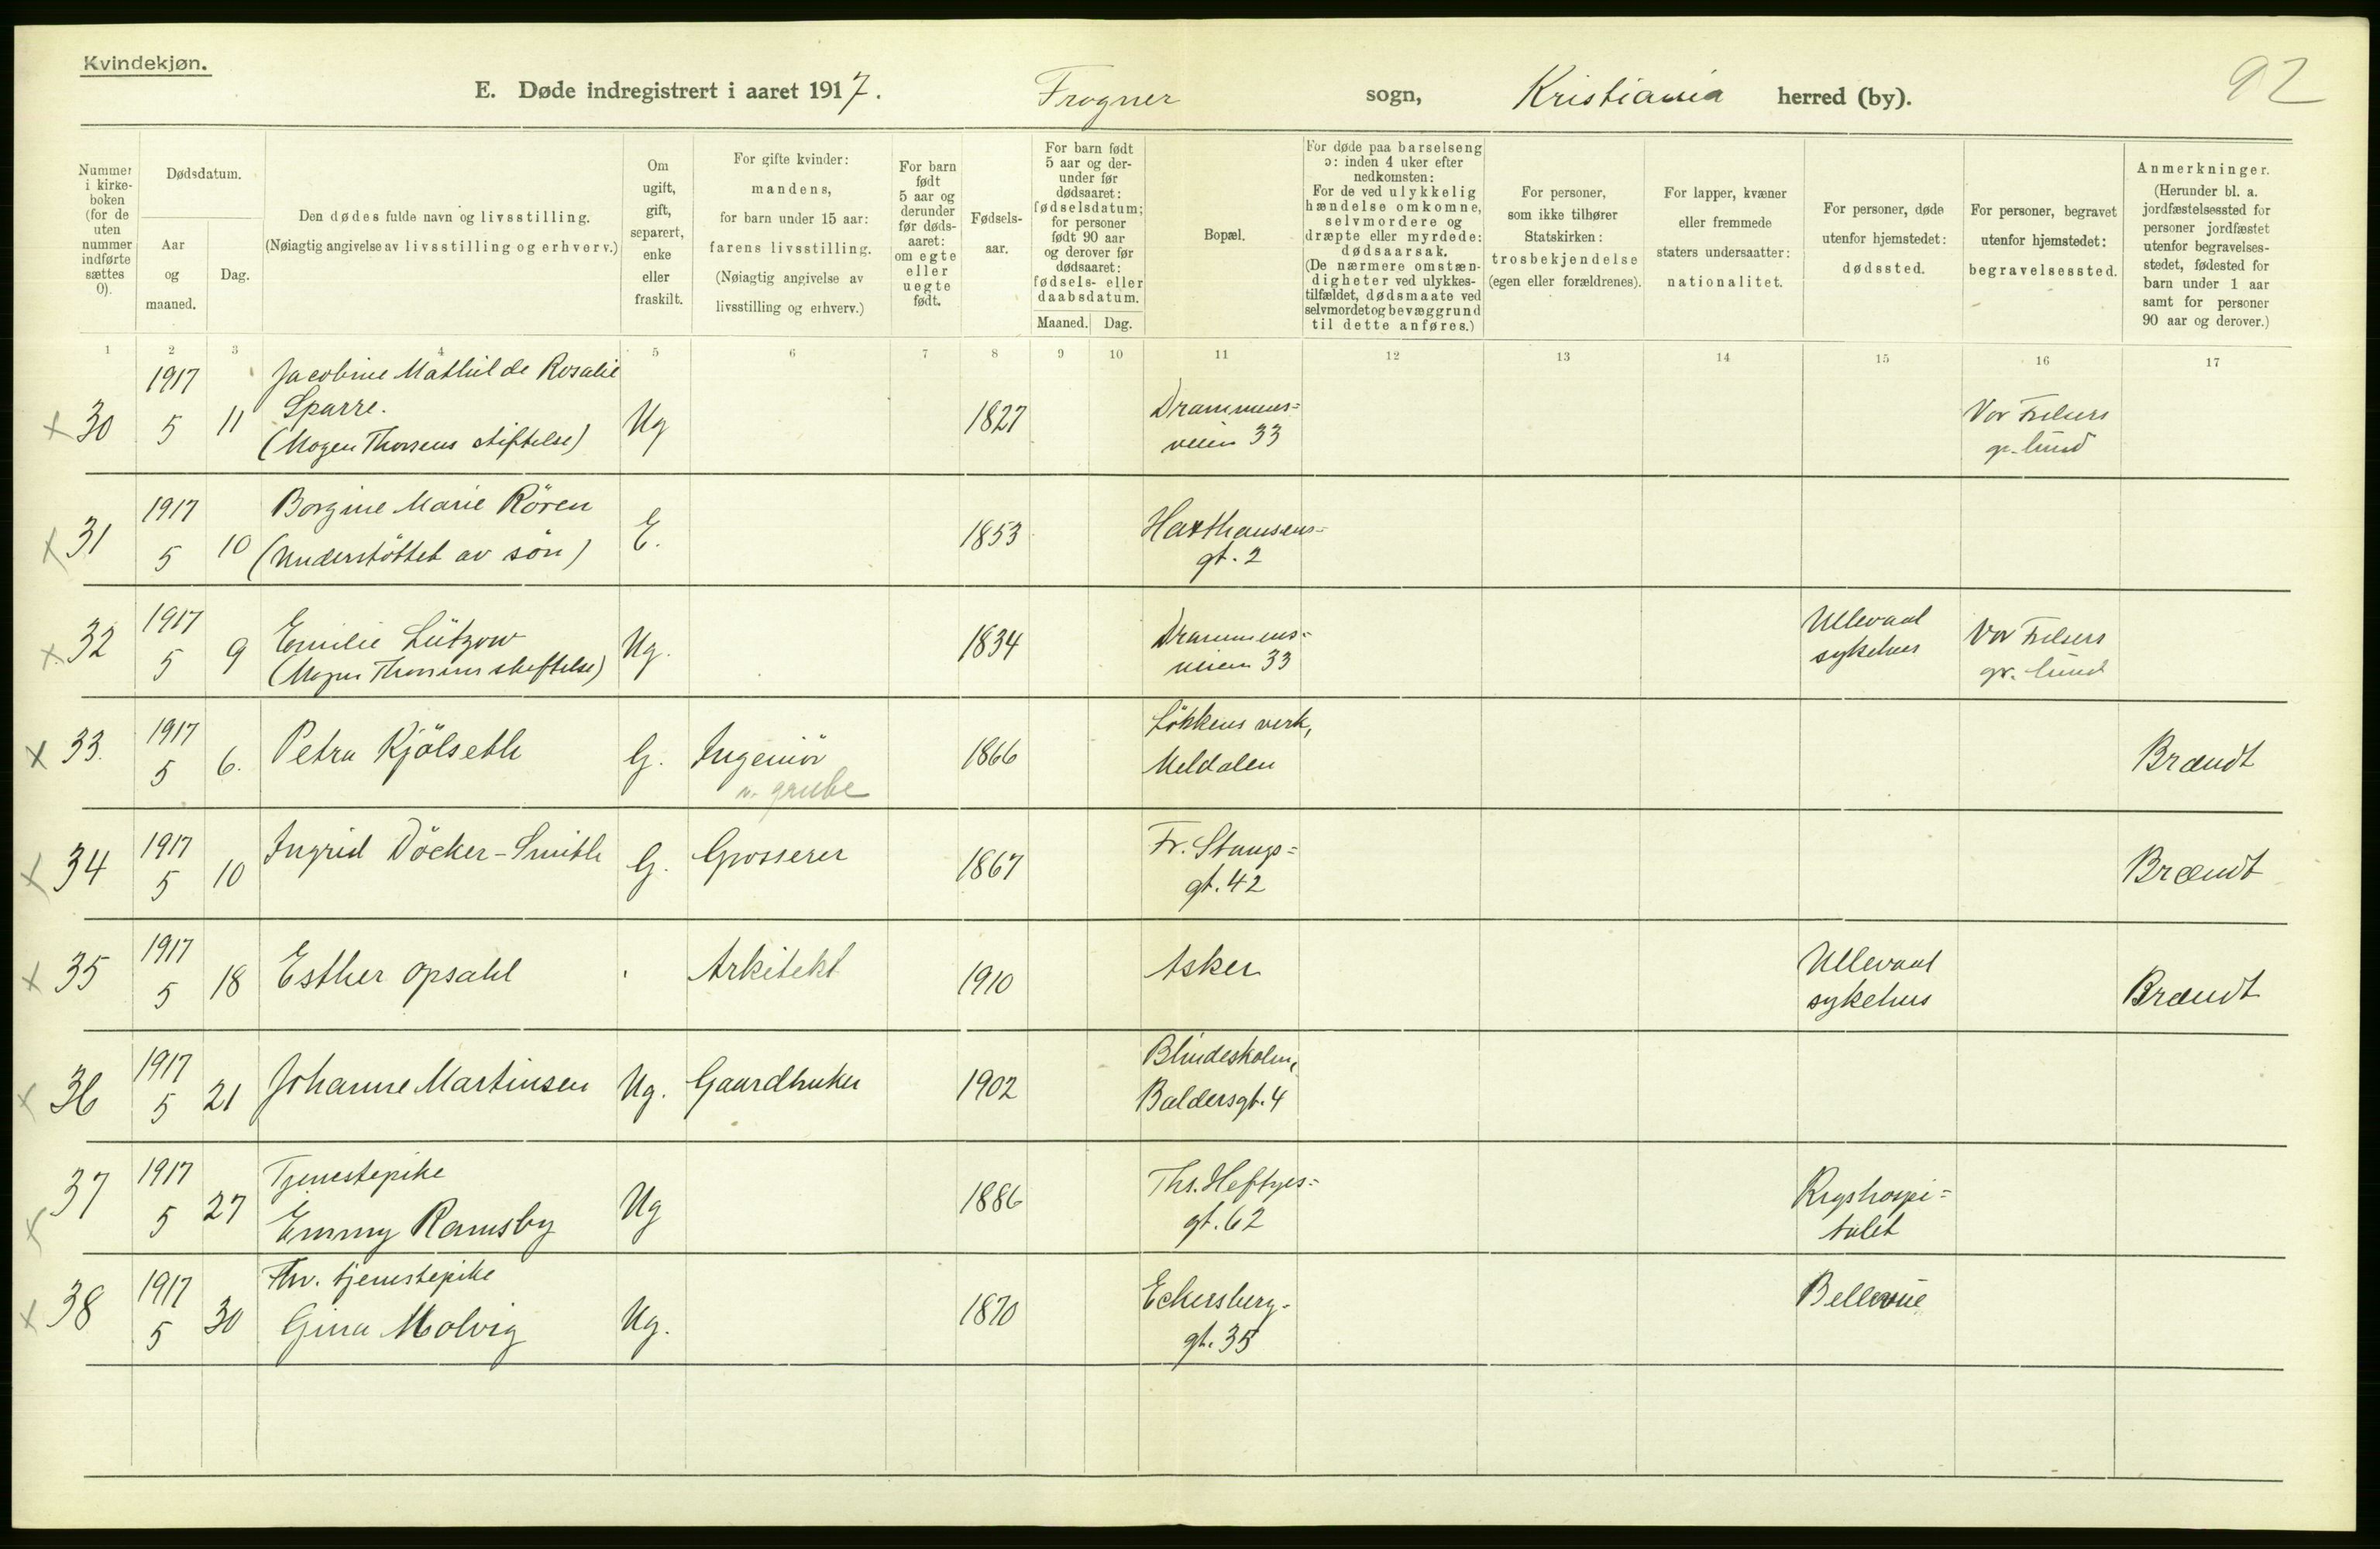 Kvindekjøn.
92
E. Døde indregistrert i aaret 1917. Frogner sogn, Kristiania herred (by).
Nummer i kirke-boken (for de uten nummer indførte sættes 0).
Dødsdatum.
Aar og maaned.
Dag.
Den dødes fulde navn og livsstilling.
(Nøiagtig angivelse av livsstilling og erhverv.)
Om ugift, gift, separert, enke eller fraskilt.
For gifte kvinder: mandens, for barn under 15 aar: farens livsstilling.
(Nøiagtig angivelse av livsstilling og erhverv.)
For barn født 5 aar og derunder før døds-aaret: om egte eller uegte født.
Fødsels-aar.
For barn født 5 aar og der-under før dødsaaret: fødselsdatum; for personer født 90 aar og derover før dødsaaret: fødsels- eller daabsdatum.
Maaned. Dag.
Bopæl.
For døde paa barselseng ɔ: inden 4 uker efter nedkomsten:
For de ved ulykkelig hændelse omkomne, selvmordere og dræpte eller myrdede: dødsaarsak.
(De nærmere omstæn-digheter ved ulykkes-tilfældet, dødsmaate ved selvmordet og bevæggrund til dette anføres.)
For personer, som ikke tilhører Statskirken: trosbekjendelse (egen eller forældrenes).
For lapper, kvæner eller fremmede staters undersaatter: nationalitet.
For personer, døde utenfor hjemstedet: dødssted.
For personer, begravet utenfor hjemstedet: begravelsessted.
Anmerkninger.
(Herunder bl. a. jordfæstelsessted for personer jordfæstet utenfor begravelses-stedet, fødested for barn under 1 aar samt for personer 90 aar og derover.)
1 2 3 4 5 6 7 8 9 10 11 12 13 14 15 16 17
x 30 1917 5 11 Jacobine Mathilde Rosalie Sparre. (Mogen Thorsens stiftelse) Ug 1827 Drammens= veien 33 Vor Frelsers gr. lund
x 31 1917 5 10 Borgine Marie Rören (Understöttet av sön) E. 1853 Haxthausens= gt. 2
x 32 1917 5 9 Emilie Lützow (Mogens Thorsens stiftelse) Ug. 1834 Drammens= veien 33 Ullevaal sykehus Vor Frelsers gr. lund
x 33. 1917 5 6. Petra Kjölseth G. Ingeniör v. grube 1866 Lökkens verk, Meldalen Brandt
x 34 1917 5 10 Ingrid Döcker-Smith G. Grosserer 1867 Fr. Stangs= gt. 42 Brandt
x 35 1917 5 18 Esther Opsahl Arkitekt 1910 Asker Ullevaal sykehus Brandt
x 36 1917 5 21 Johanne Martinsen Ug. Gaardbruker 1902 Blindeskolen, Baldersgt. 4
x 37 1917 5 27 Tjenestepike Emmy Ramsby Ug 1886 Ths. Heftyes= gt. 62 Rigshospi= talet
x 38 1917 5 30 Fhv. tjenestepike Gina Molvig Ug. 1870 Eckersberg- gt. 35 Bellevue